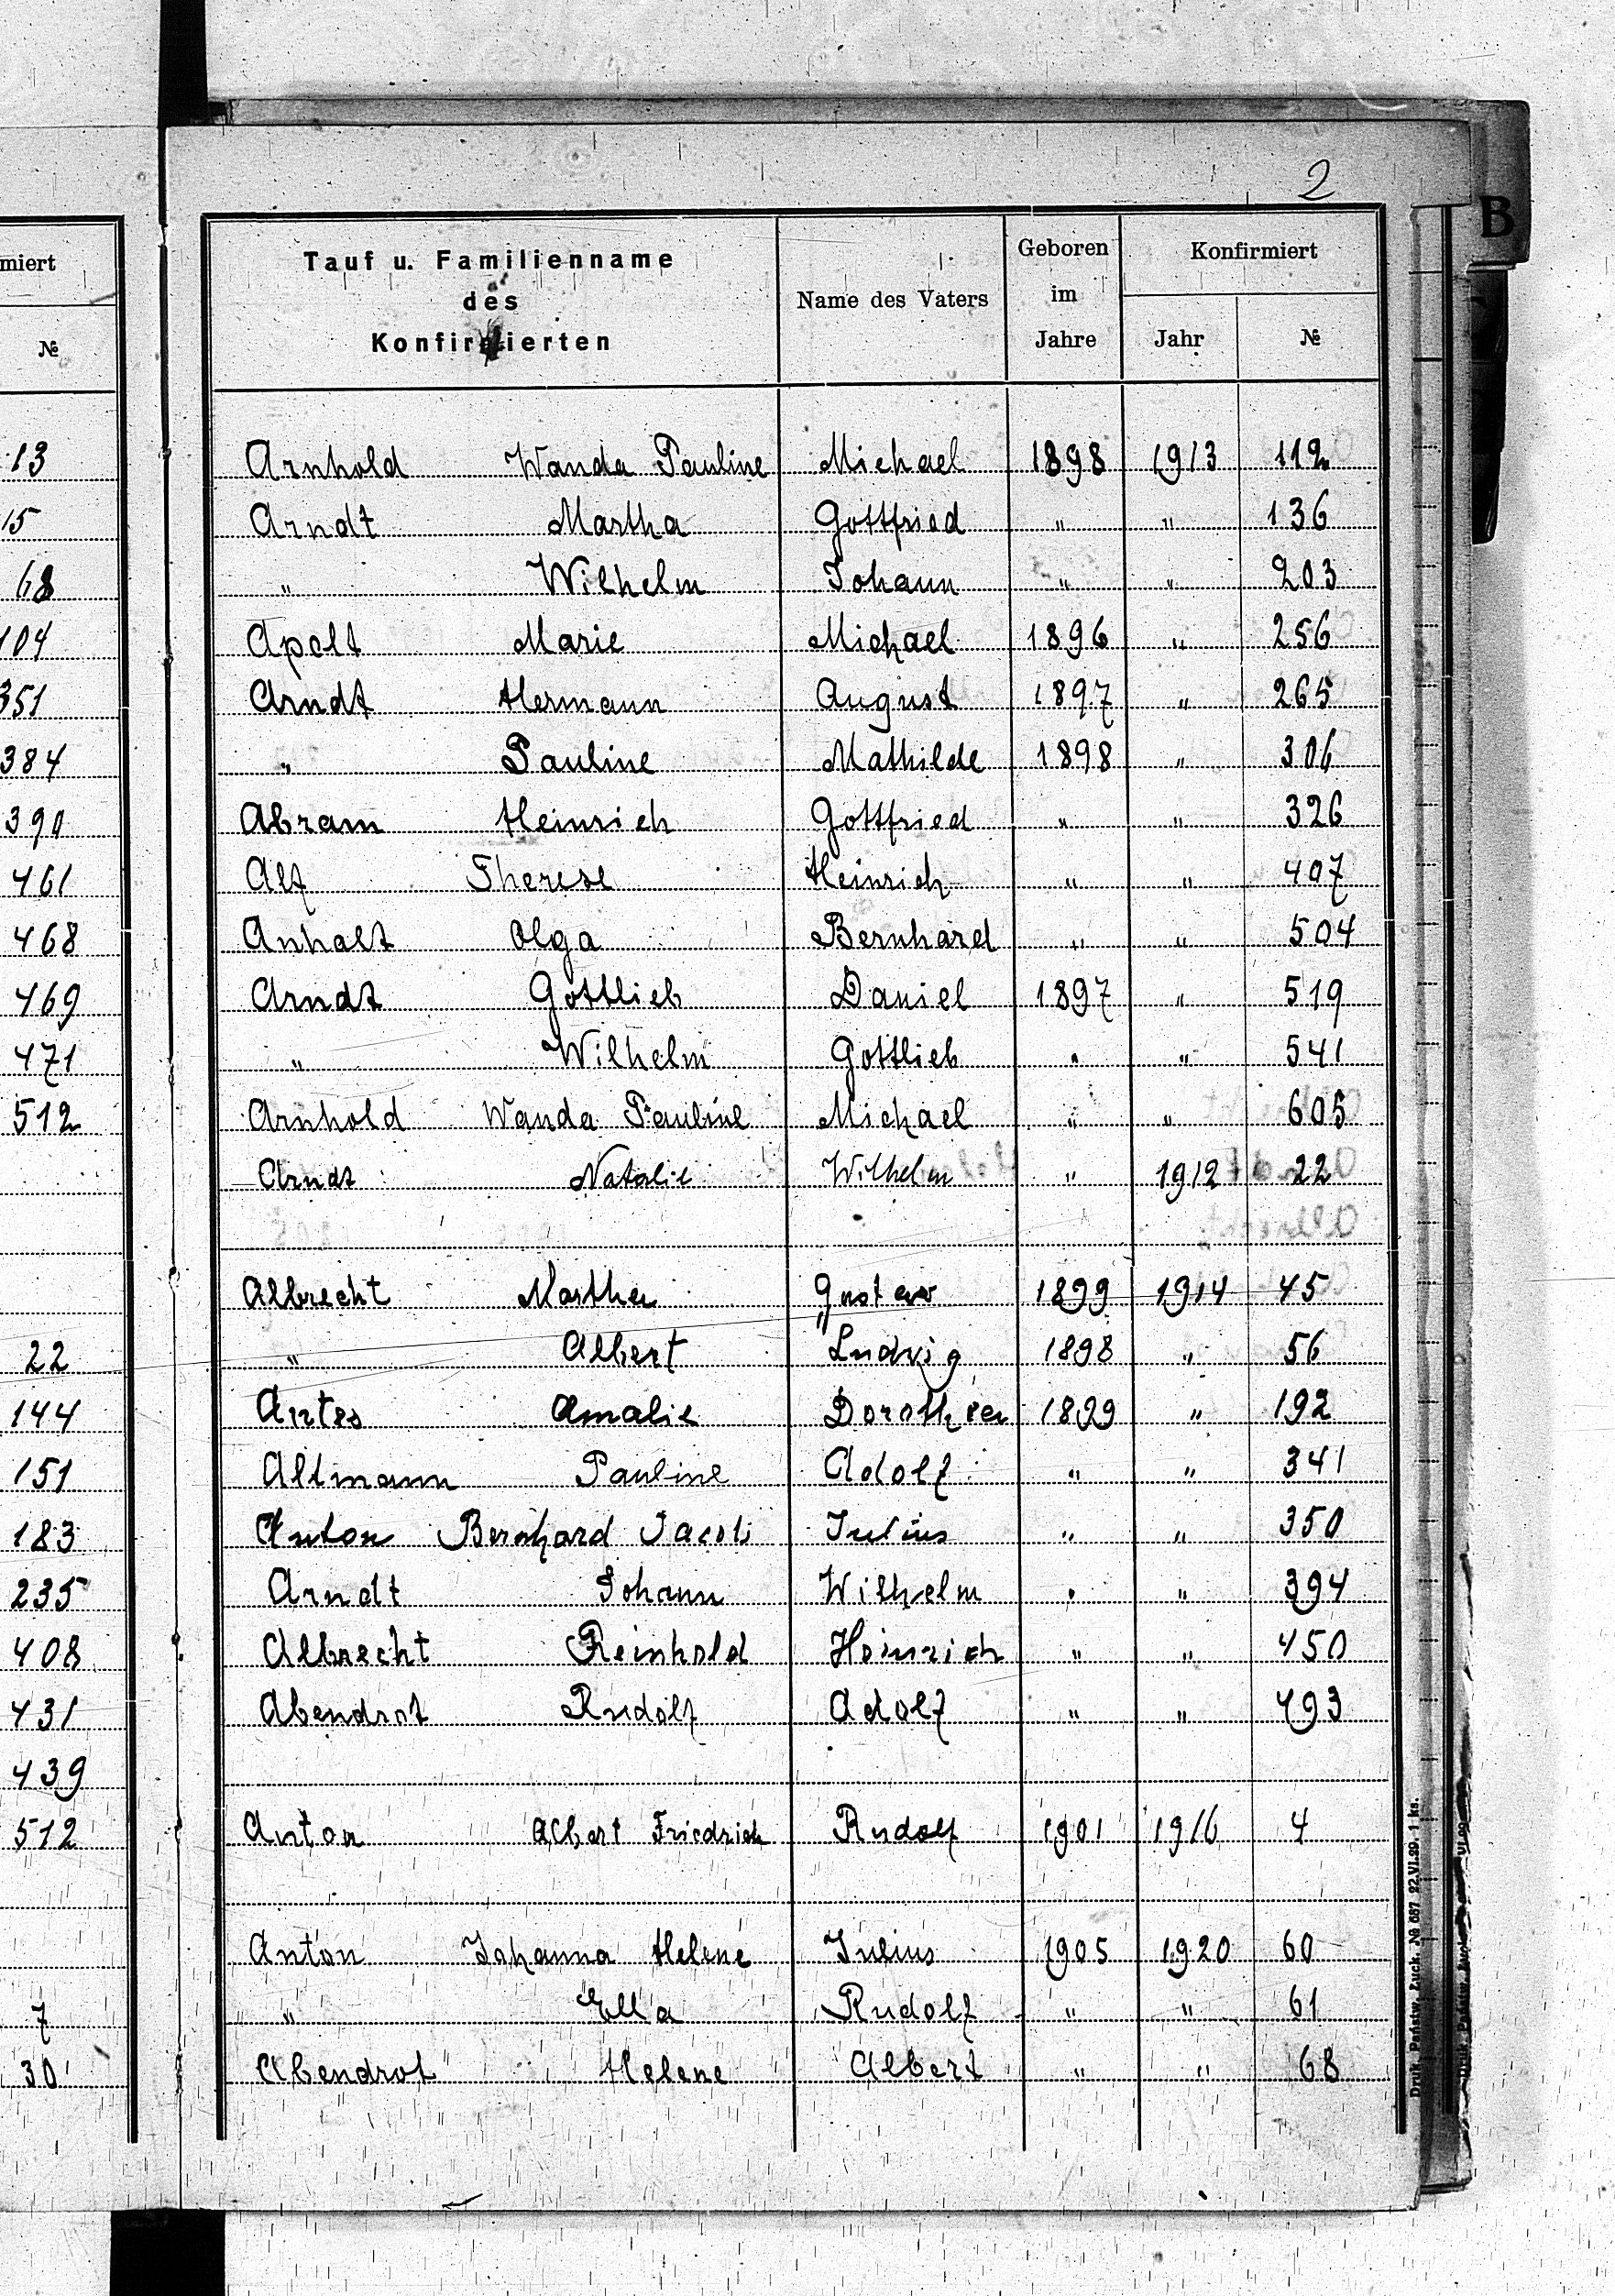 2
B
miert
№
13
15
68
104
351
384
390
461
468
469
471
512
22
144
151
183
235
408
431
439
512
7
30
Tauf u. Familienname des Konfirmierten | Name des Vaters | Geboren im Jahre | Konfirmiert Jahr | №
Arnhold Wanda Pauline Michael 1898 1913 112
Arndt Martha Gottfried " " 136
" Wilhelm Johann " " 203
Apelt Marie Michael 1896 " 256
Arndt Hermann August 1897 " 265
" Pauline Mathilde 1898 " 306
Abram Heinrich Gottfried " " 326
Alf Therese Heinrich " " 407
Anhalt Olga Bernhard " " 504
Arndt Gottlieb Daniel 1897 " 519
" Wilhelm Gottlieb " " 541
Arnhold Wanda Pauline Michael " " 605
Arndt Natalie Wilhelm " 1912 22
Albrecht Martha Gustav 1899 1914 45
" Albert Ludwig 1898 " 56
Artes Amalie Dorothea 1899 " 192
Altmann Pauline Adolf " " 341
Anton Bernhard Jacob Julius " " 350
Arndt Johann Wilhelm " " 394
Albrecht Reinhold Heinrich " " 450
Abendrot Rudolf Adolf " " 493
Anton Albert Friedrich Rudolf 1901 1916 4
Anton Johanna Helene Julius 1905 1920 60
" Ella Rudolf " " 61
Abendrot Helene Albert " " 68
Druk. Państw. Łuck. № 687 22.VI.29. 1 ks.